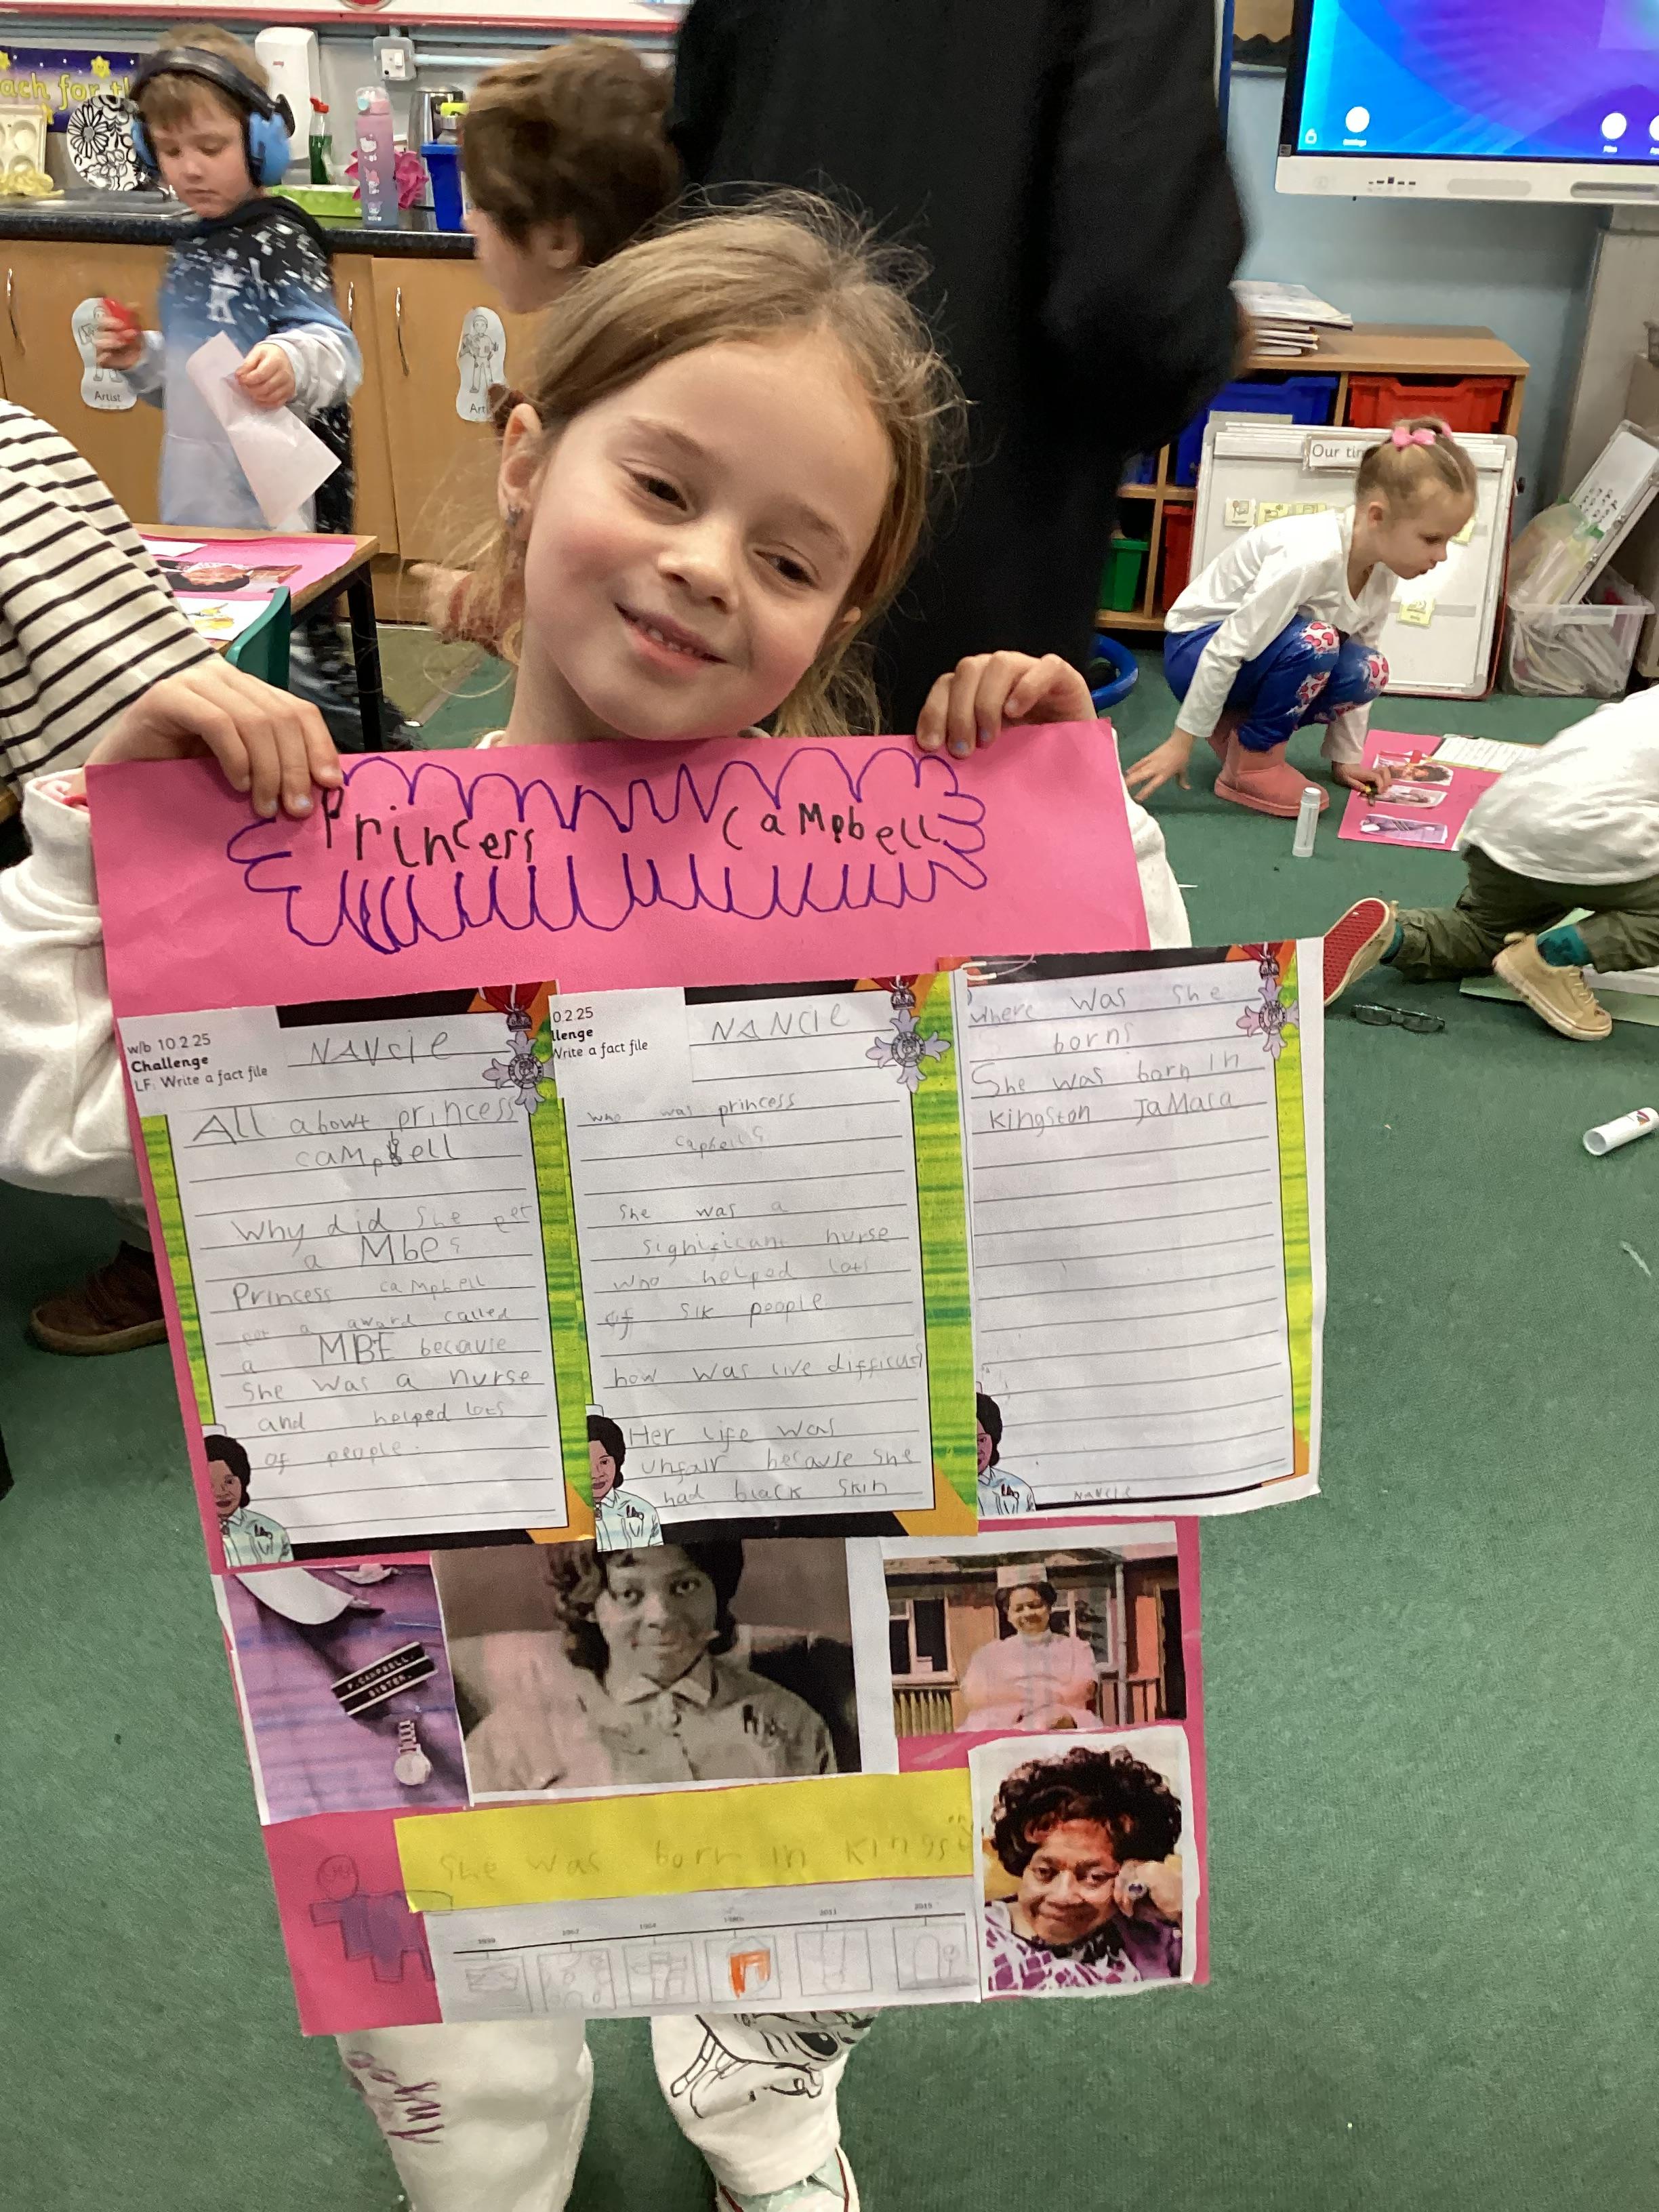 ach for th
Artist
Arti
Our tim
Princess Campbell
w/b 10.2.25
Challenge
LF. Write a fact file
NANCIE
All about princess
campbell
Why did she get
a Mbe?
Princess campbell
get a award called
a MBE because
She was a nurse
and helped lots
of people.
0.2.25
llenge
Write a fact file
NANCIE
who was princess
Capbell?
She was a
significant nurse
who helped lots
of sik people
how was live difficult
Her life was
unfair because she
had black skin
where was she
born?
She was born in
kingston JaMaca
NANCIE
P. CAMPBELL.
SISTER.
She was born in kingston
1939
1957
1964
1980s
2011
2015